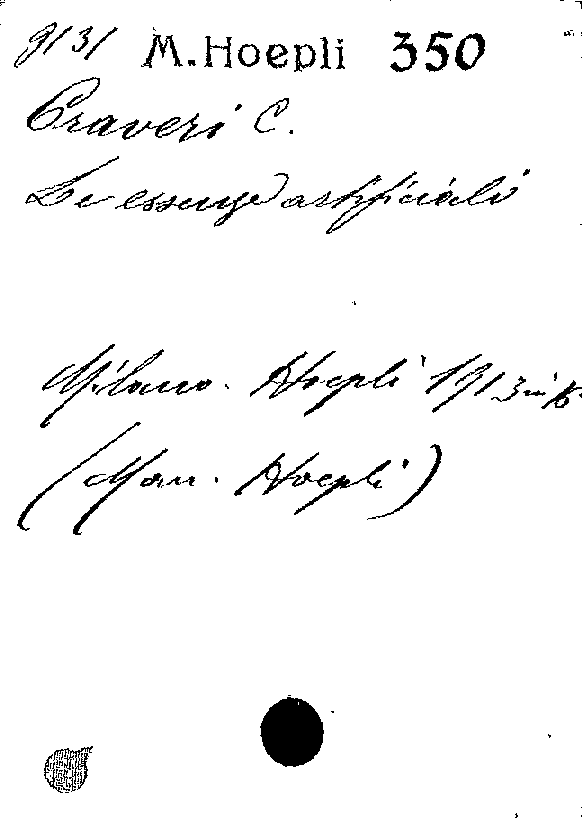 9131 M. Hoepli 350
Craveri C.
Le essenze artificiali
Milano. Hoepli 1913 in 16
(Man. Hoepli)